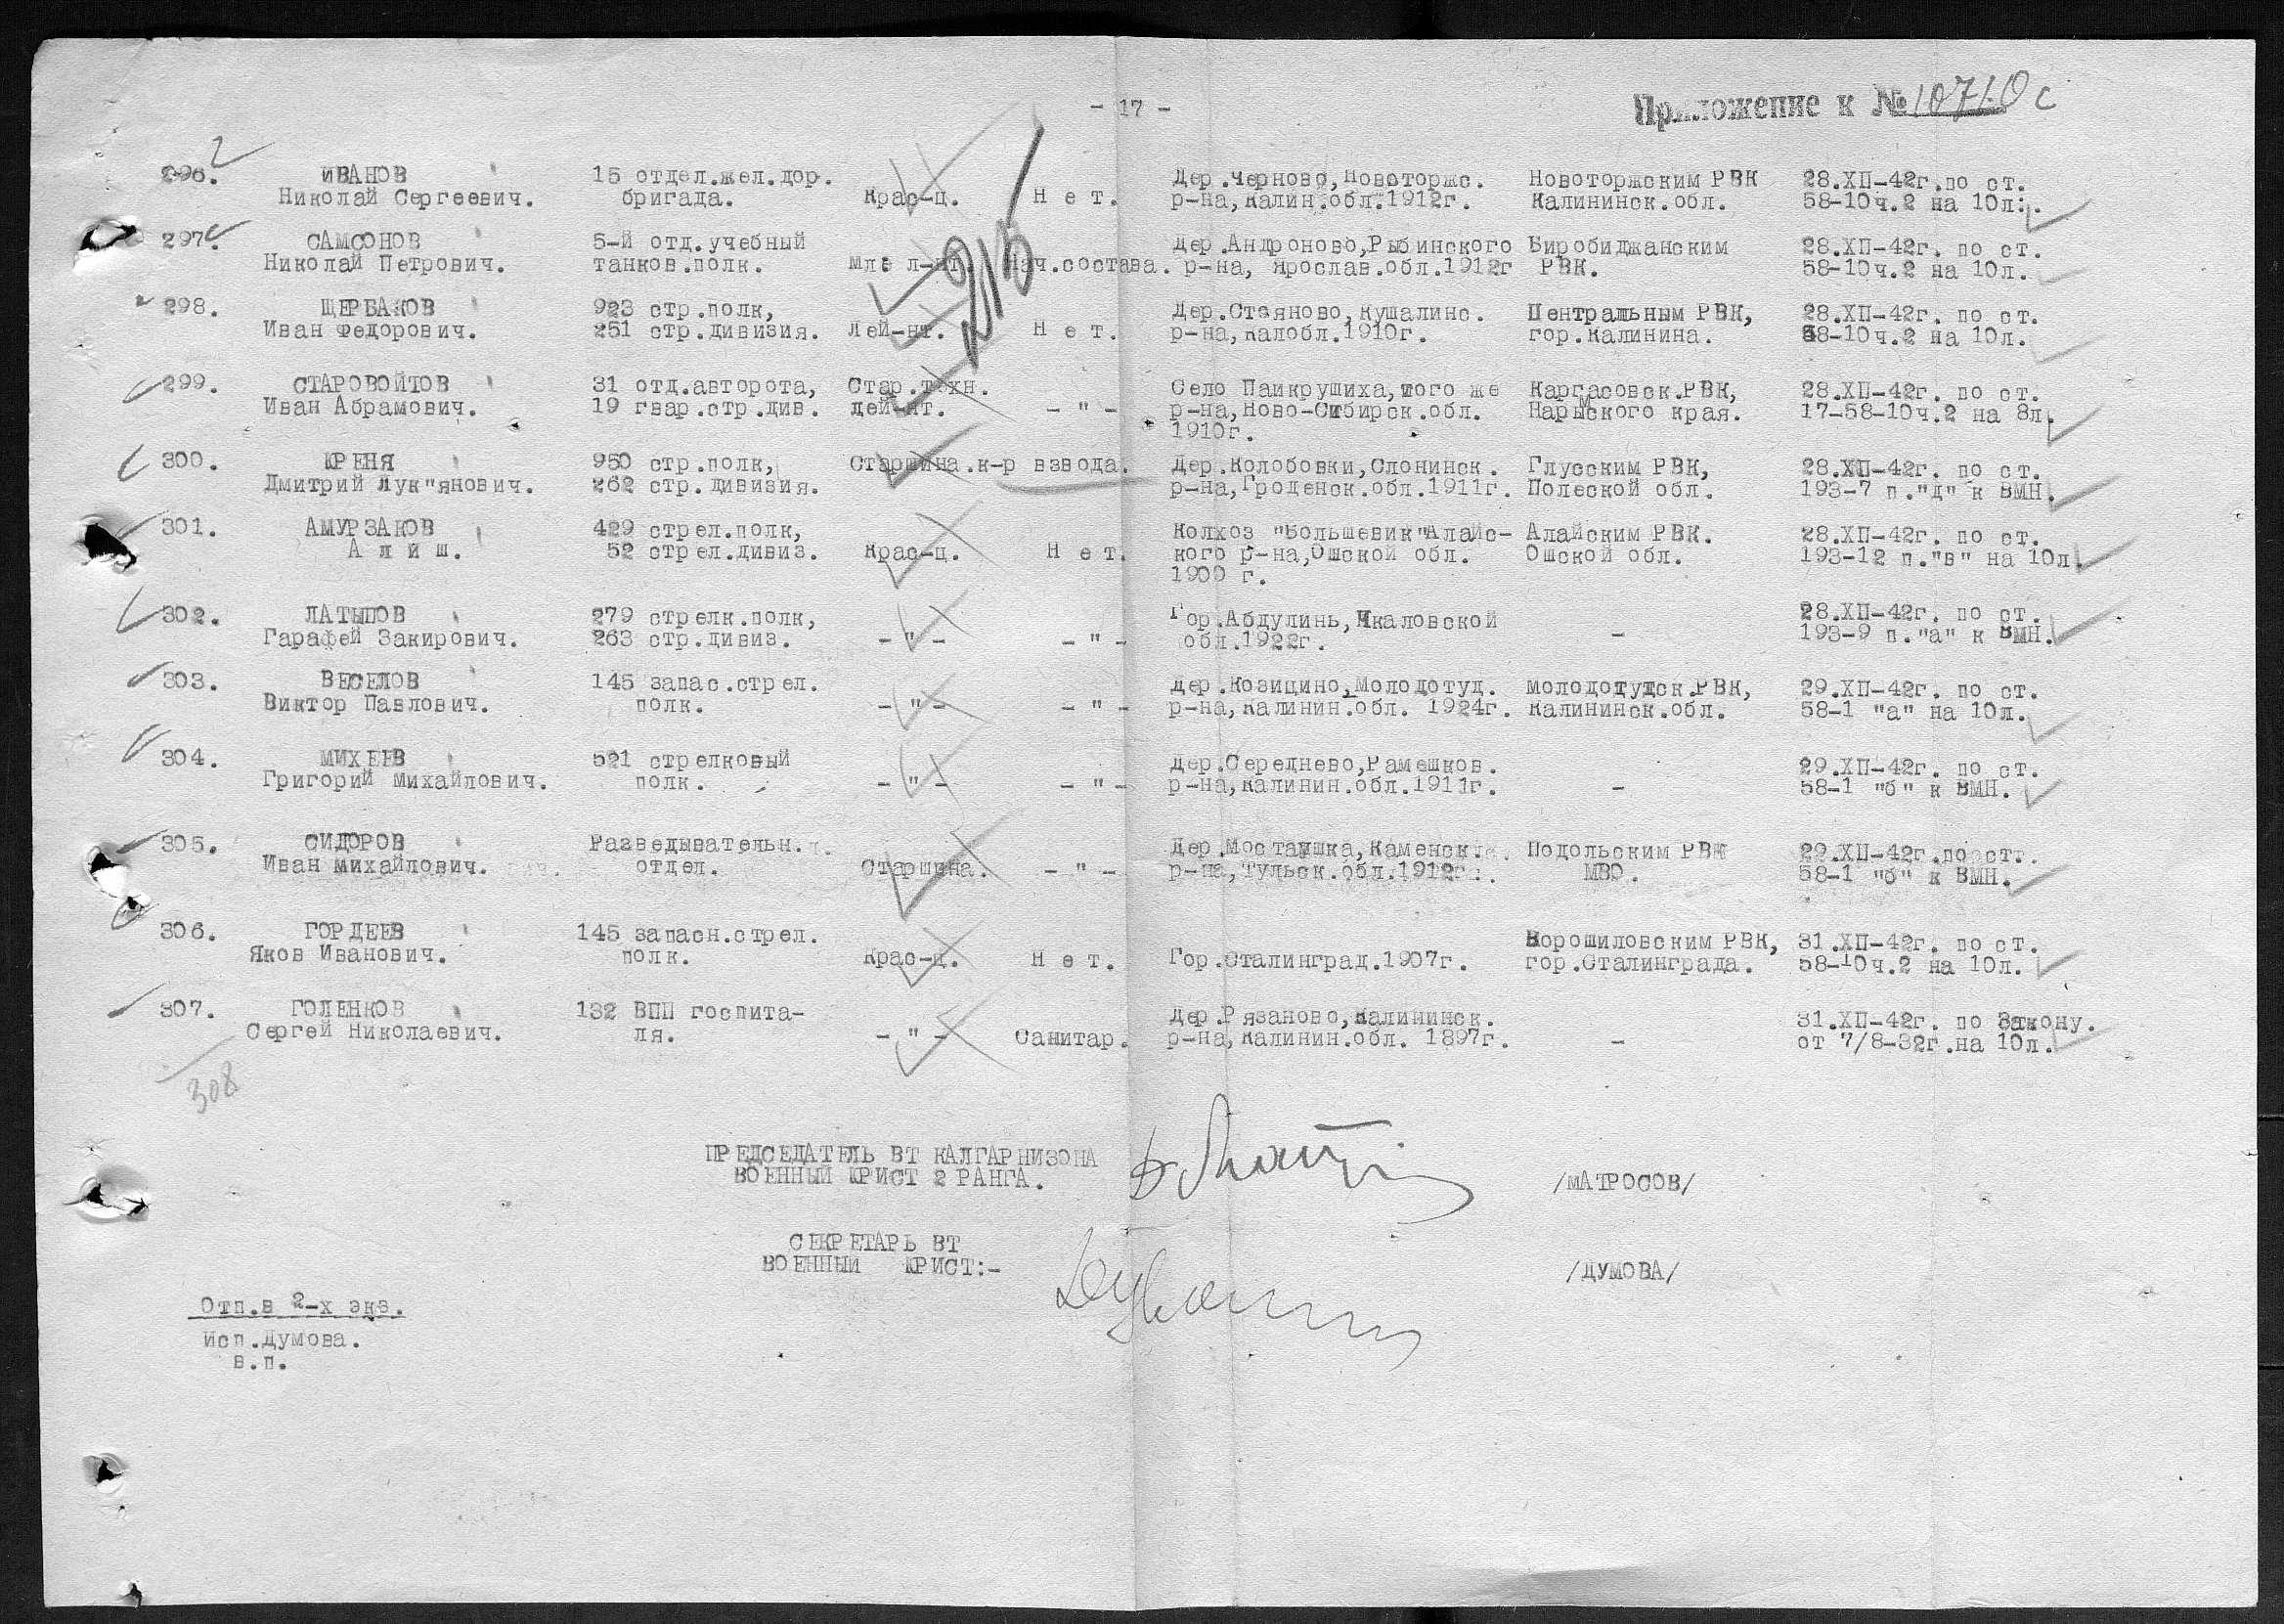 - 17 -
Приложение к № 10710 с
296. ИВАНОВ 15 отдел.жел.дор. Дер.Черново,Новоторжс. Новоторжским РВК 28.ХП-42г.по ст.
Николай Сергеевич. бригада. Крас-ц. Н е т. р-на,Калин.обл.1912г. Калининск.обл. 58-10ч.2 на 10л.
297. САМСОНОВ 5-й отд.учебный Дер.Андроново,Рыбинского Биробиджанским 28.ХП-42г. по ст.
Николай Петрович. танков.полк. Мл. л-нт. Нач.состава. р-на, Ярослав.обл.1912г РВК. 58-10ч.2 на 10л.
298. ЩЕРБАКОВ 923 стр.полк, Дер.Стояново,Кушалинс. Центральным РВК, 28.ХП-42г. по ст.
Иван Федорович. 251 стр.дивизия. Лей-нт. Н е т. р-на,Калобл.1910г. гор.Калинина. 58-10ч.2 на 10л.
299. СТАРОВОЙТОВ 31 отд.авторота, Стар.техн. Село Панкрушиха,того же Каргасовск.РВК, 28.ХП-42г. по ст.
Иван Абрамович. 19 гвар.стр.див. лей-нт. - " - р-на,Ново-Сибирск.обл. Нарымского края. 17-58-10ч.2 на 8л.
1910г.
300. КРЕНЯ 950 стр.полк, Старшина. к-р взвода. Дер.Колобовки,Слонинск. Глусским РВК, 28.ХП-42г. по ст.
Дмитрий Лук"янович. 262 стр.дивизия. р-на,Гроденск.обл.1911г. Полеской обл. 193-7 п."д" к ВМН.
301. АМУРЗАКОВ 429 стрел.полк, Колхоз "Большевик"Алайс- Алайским РВК. 28.ХП-42г. по ст.
А л й ш. 52 стрел.дивиз. Крас-ц. Н е т. кого р-на,Ошской обл. Ошской обл. 193-12 п."в" на 10л.
1900 г.
302. ЛАТЫПОВ 279 стрелк.полк, Гор.Абдулинь,Чкаловской 28.ХП-42г. по ст.
Гарафей Закирович. 263 стр.дивиз. - " - - " - обл.1922г. - 193-9 п."а" к ВМН.
303. ВЕСЕЛОВ 145 запас.стрел. Дер.Козицино,Молодотуд. Молодотудск.РВК, 29.ХП-42г. по ст.
Виктор Павлович. полк. - " - - " - р-на,Калинин.обл. 1924г. Калининск.обл. 58-1 "а" на 10л.
304. МИХЕЕВ 521 стрелковый Дер.Середнево,Рамешков. 29.ХП-42г. по ст.
Григорий Михайлович. полк. - " - - " - р-на,Калинин.обл.1911г. - 58-1 "б" к ВМН.
305. СИДОРОВ Разведывательн. Дер.Мостаушка,Каменск. Подольским РВК 29.ХП-42г.по ст.
Иван Михайлович. отдел. Старшина. - " - р-на,Тульск.обл.1912г. МВО. 58-1 "б" к ВМН.
306. ГОРДЕЕВ 145 запасн.стрел. Ворошиловским РВК, 31.ХП-42г. по ст.
Яков Иванович. полк. Крас-ц. Н е т. Гор.Сталинград.1907г. гор.Сталинграда. 58-10ч.2 на 10л.
307. ГОЛЕНКОВ 132 ВПП госпита- Дер.Рязаново,Калининск. 31.ХП-42г. по Закону.
Сергей Николаевич. ля. - " - Санитар. р-на,Калинин.обл. 1897г. - от 7/8-32г.на 10л.
308
ПРЕДСЕДАТЕЛЬ ВТ КАЛГАРНИЗОНА
ВОЕННЫЙ ЮРИСТ 2 РАНГА. /МАТРОСОВ/
СЕКРЕТАРЬ ВТ
ВОЕННЫЙ ЮРИСТ:- /ДУМОВА/
Отп.в 2-х экз.
Исп.Думова.
в.п.